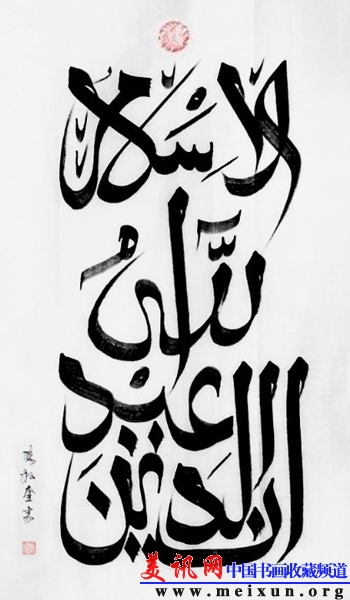 ان الدين
عند
الله
الاسلام
美讯网 中国书画收藏频道
www.meixun.org